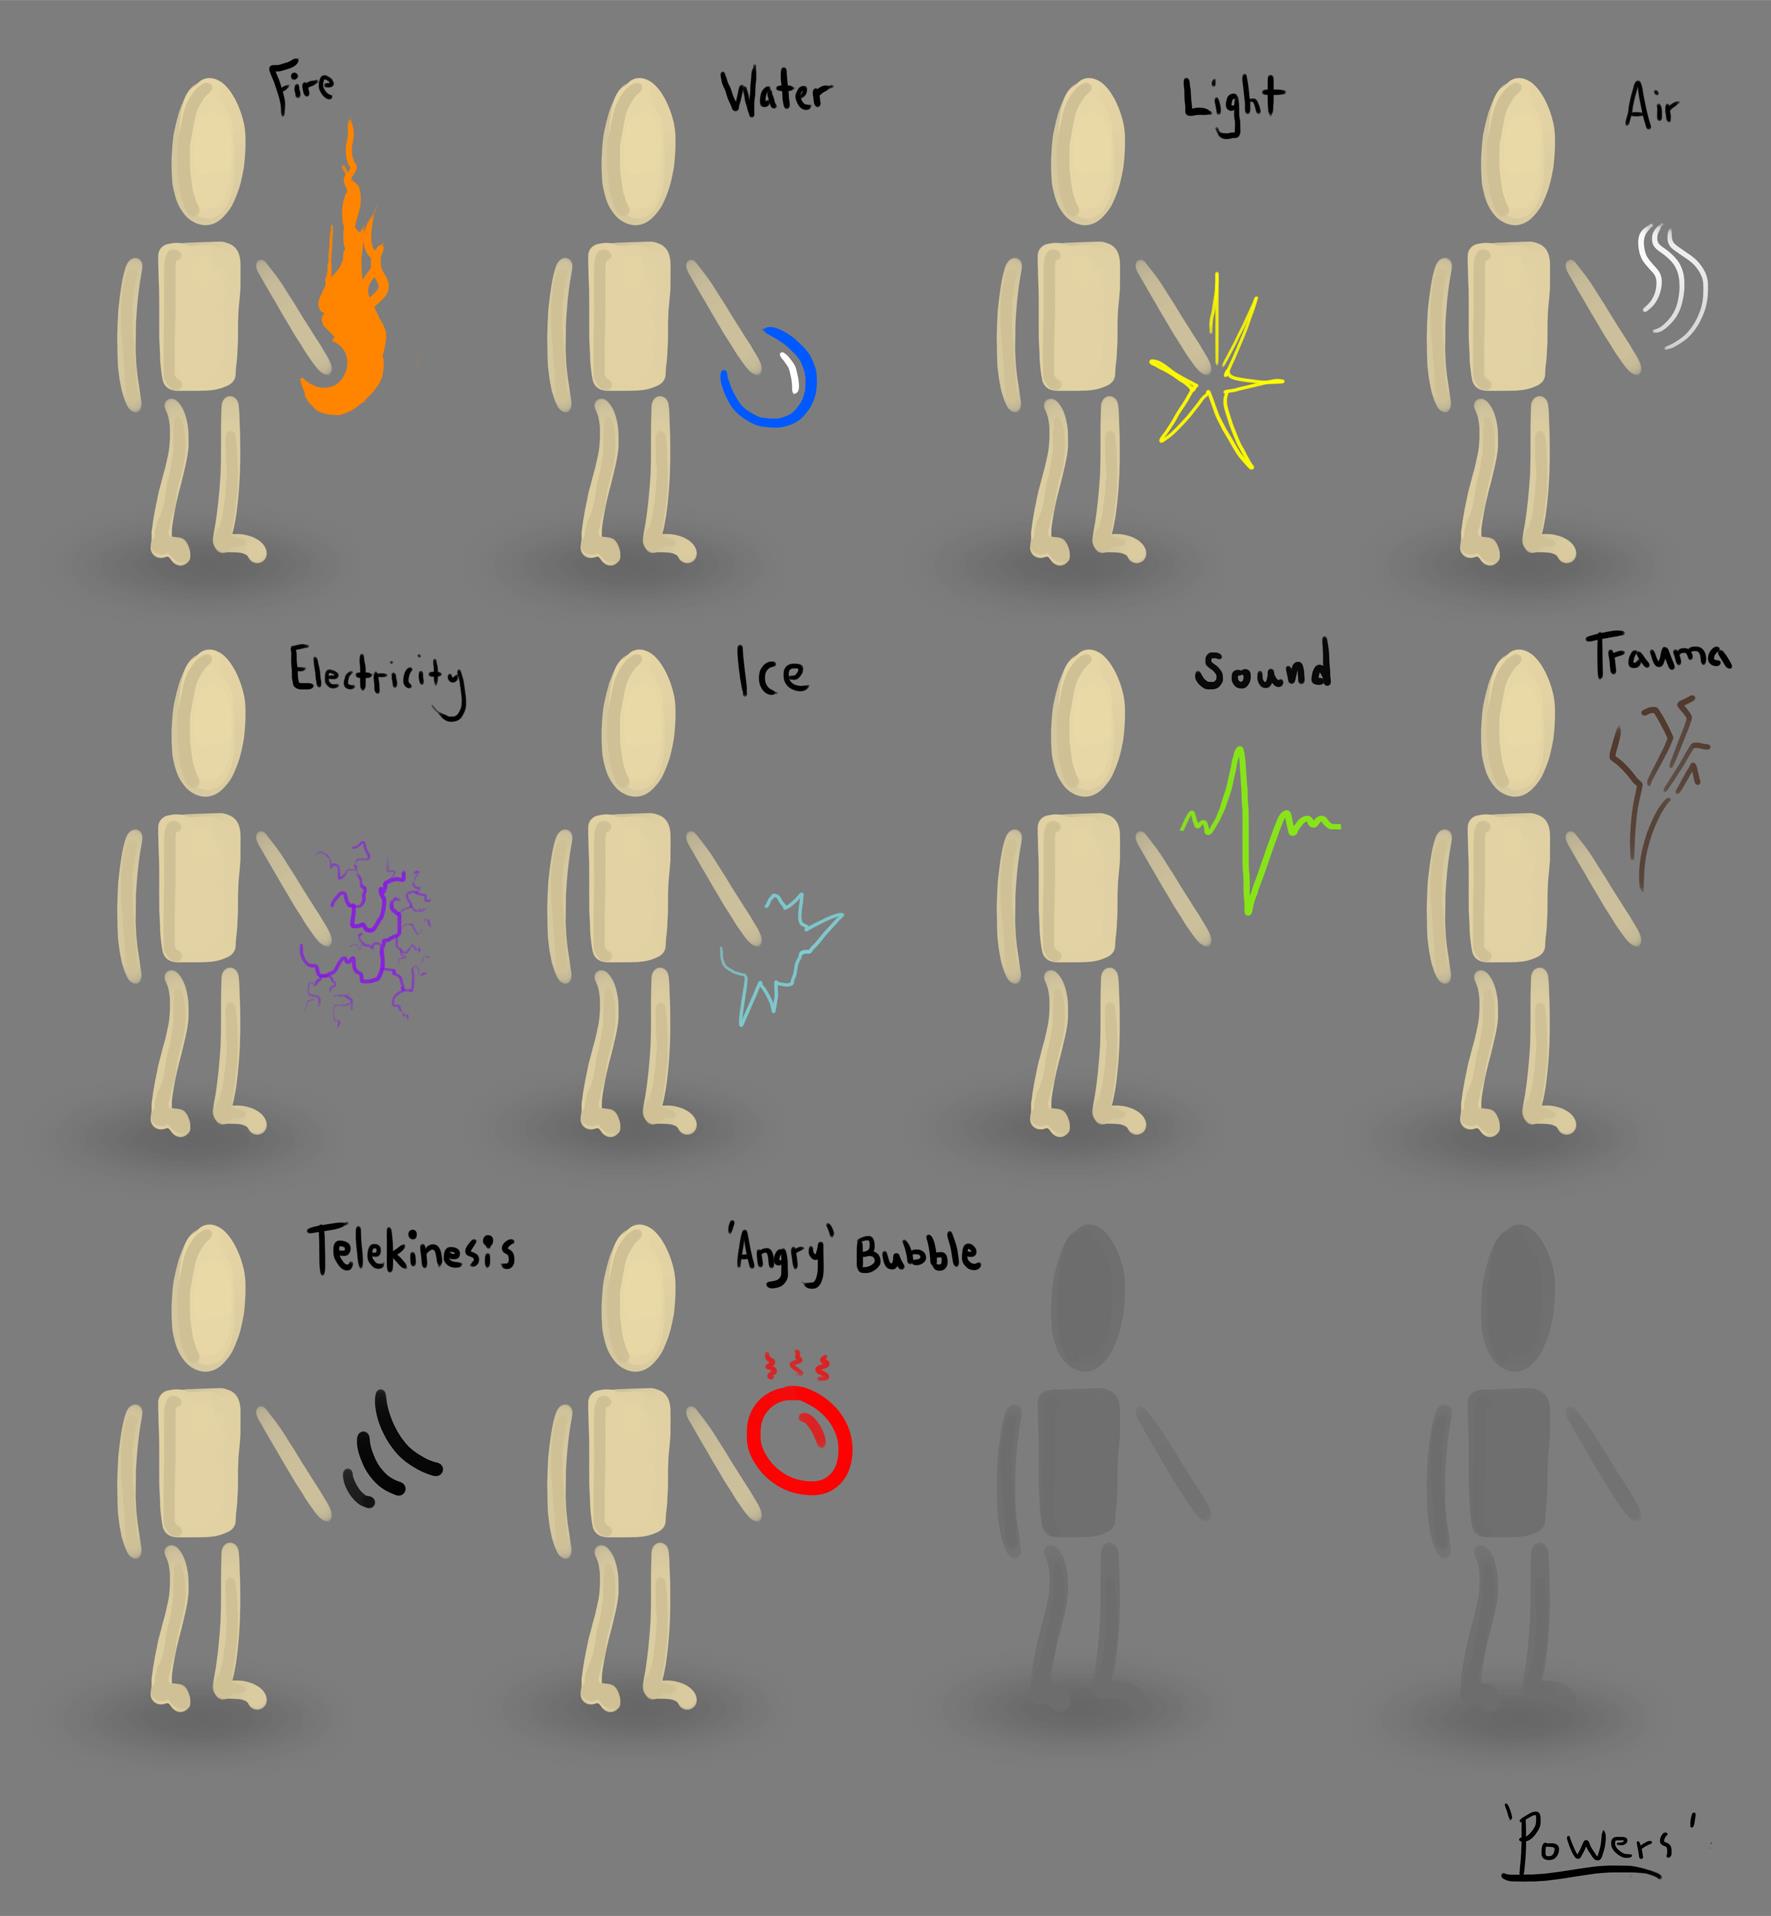 Fire
Water
Light
Air
Electricity
Ice
Sound
Trauma
Telekinesis
'Angry' Bubble
'Powers'